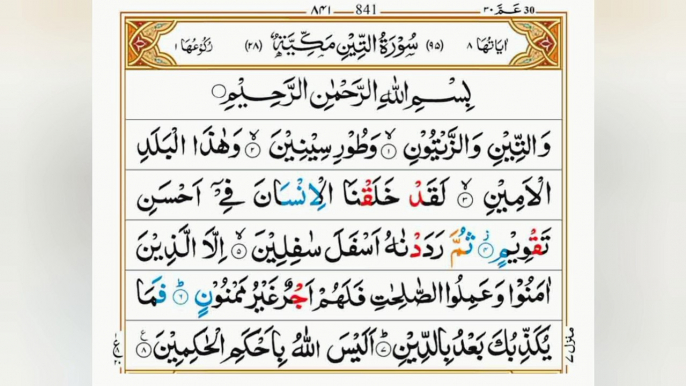 ٨٤١ 841 عَمَّ ٣٠ 30
اٰیَاتُهَا ٨ (٩٥) سُوْرَةُ التِّيْنِ مَكِّيَّةٌ (٢٨) رُكُوْعُهَا ١
بِسْمِ اللّٰهِ الرَّحْمٰنِ الرَّحِيْمِ
وَالتِّيْنِ وَالزَّيْتُوْنِ ۙ‏﴿۱﴾ وَطُوْرِ سِيْنِيْنَ ۙ‏﴿۲﴾ وَهٰذَا الْبَلَدِ
الْاَمِيْنِ ۙ‏﴿۳﴾ لَقَدْ خَلَقْنَا الْاِنْسَانَ فِيْۤ اَحْسَنِ
تَقْوِيْمٍ ‏﴿۴﴾ ثُمَّ رَدَدْنٰهُ اَسْفَلَ سٰفِلِيْنَ ۙ‏﴿۵﴾ اِلَّا الَّذِيْنَ
اٰمَنُوْا وَعَمِلُوا الصّٰلِحٰتِ فَلَهُمْ اَجْرٌ غَيْرُ مَمْنُوْنٍ ؕ‏﴿۶﴾ فَمَا
يُكَذِّبُكَ بَعْدُ بِالدِّيْنِ ؕ‏﴿۷﴾ اَلَيْسَ اللّٰهُ بِاَحْكَمِ الْحٰكِمِيْنَ ‏﴿۸﴾ ع
منزل ٧